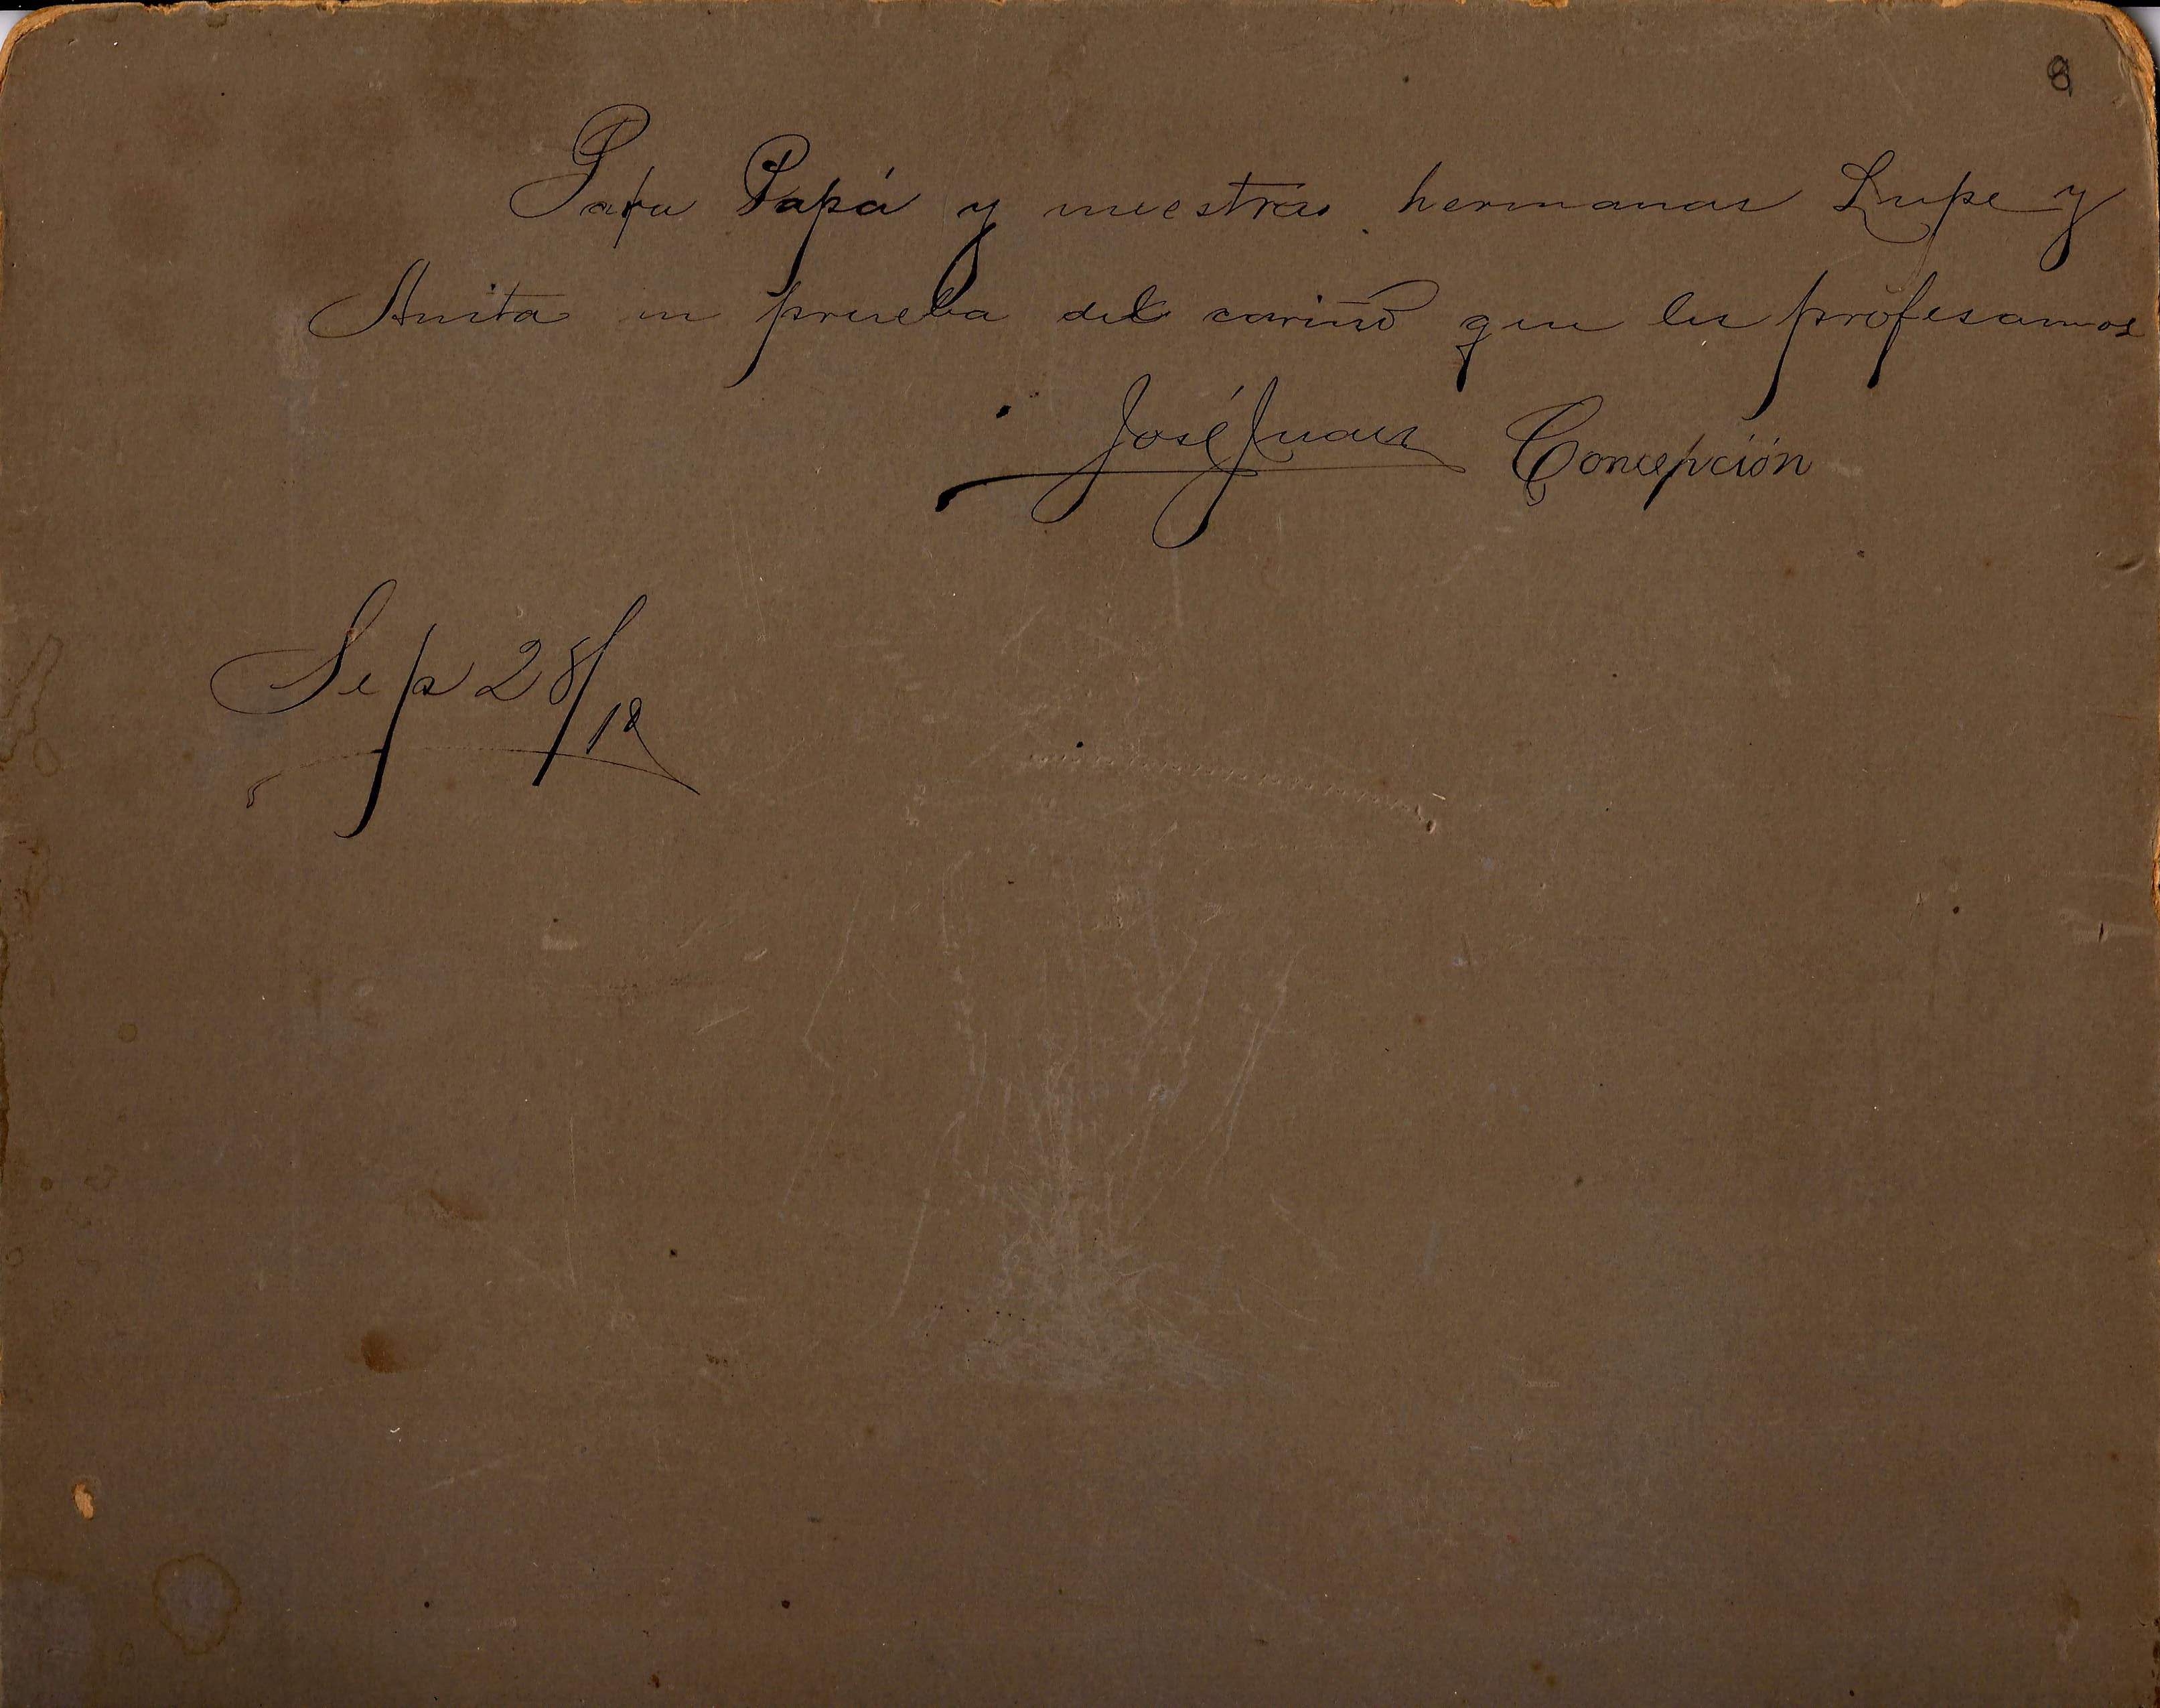 8
Para Papá y nuestras hermanas Lupe y
Anita en prueba del cariño que les profesamos
José Juan Concepción
Sep 28/12